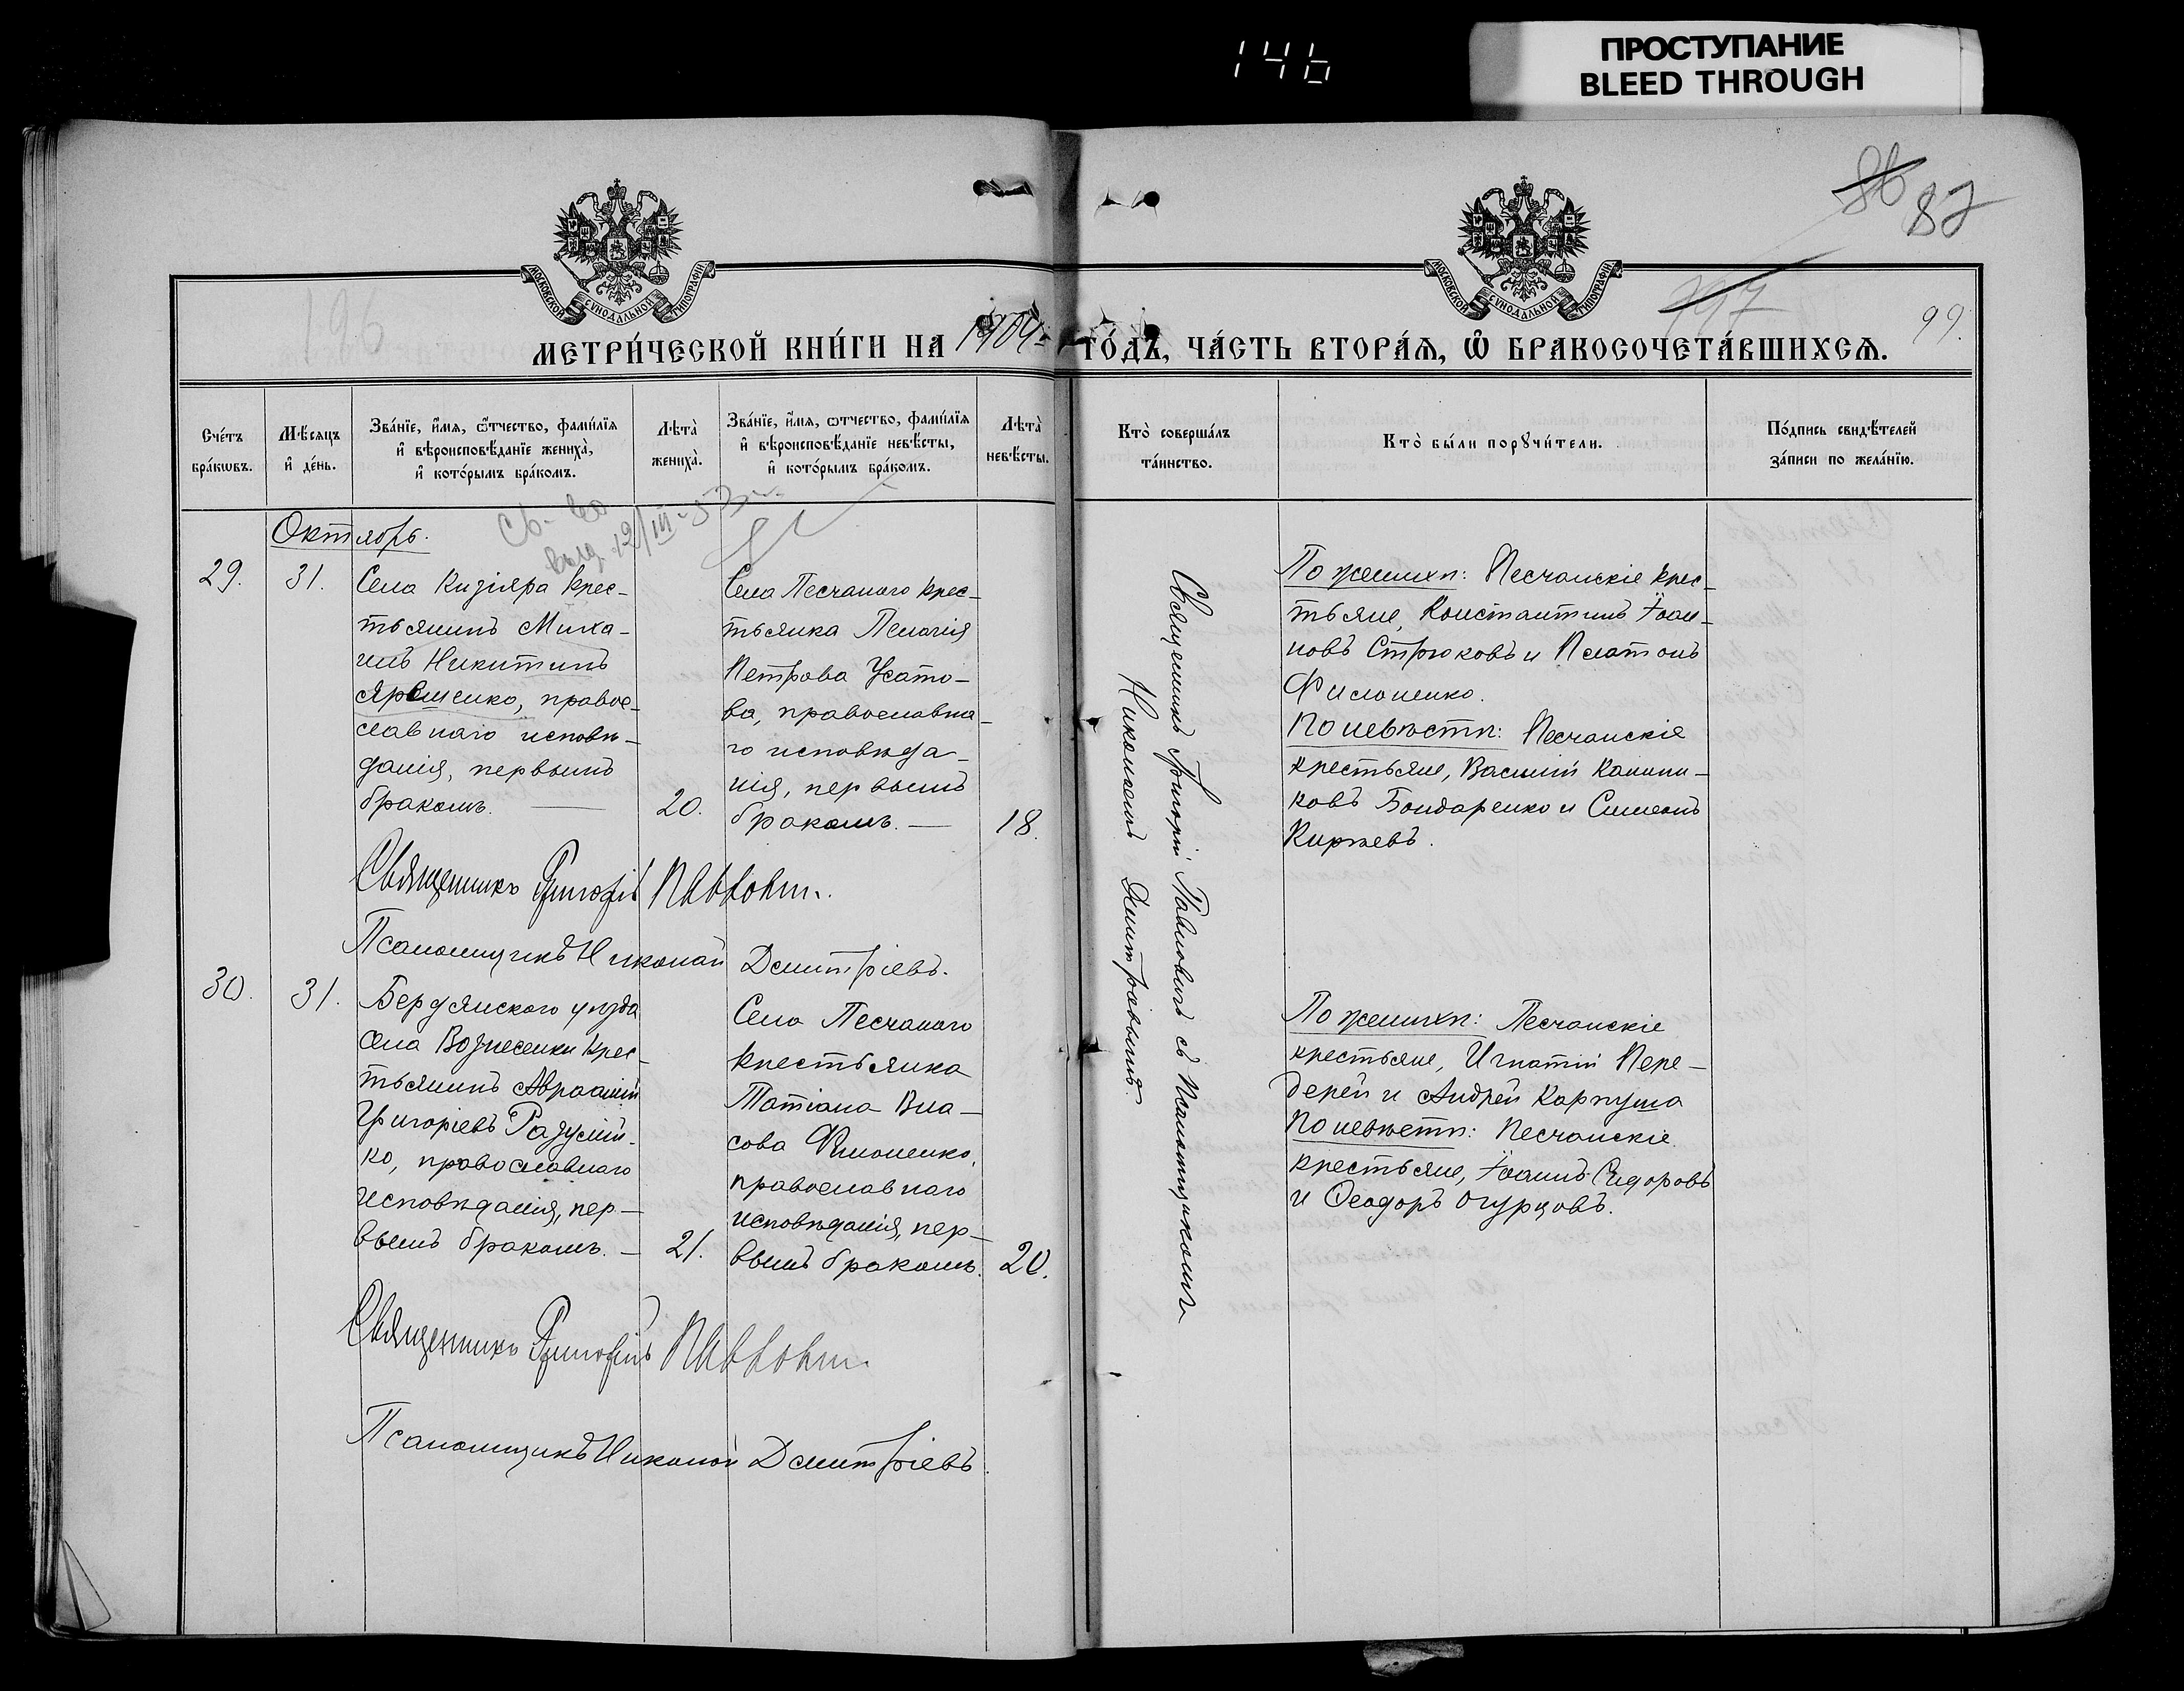 146
ПРОСТУПАНИЕ
BLEED THROUGH
86
87
196
197
99.
МОСКОВСКОЙ СѴНОДАЛЬНОЙ ТИПОГРАФІИ
МОСКОВСКОЙ СѴНОДАЛЬНОЙ ТИПОГРАФІИ
МЕТРИ́ЧЕСКОЙ КНИ́ГИ НА 1904 ГО́ДЪ, ЧА́СТЬ ВТОРА́Ѧ, Ѽ БРАКОСОЧЕТА́ВШИХСѦ.
Сче́тъ
бра́кωвъ.
Мѣ́сяцъ
и҆ де́нь.
Зва́нїе, и҆́мя, ѻ҆́тчество, фами́лїя
и҆ вѣроисповѣ́данїе жениха̀,
и҆ кото́рымъ бра́комъ.
Лѣта̀
жениха̀.
Зва́нїе, и҆́мя, ѻ҆́тчество, фами́лїя
и҆ вѣроисповѣ́данїе невѣ́сты,
и҆ кото́рымъ бра́комъ.
Лѣта̀
невѣ́сты.
Кто̀ соверша́лъ
та́инство.
Кто̀ бы́ли порꙋчи́тели.
По́дпись свидѣ́телей
за́писи по жела́нїю.
Св-во
выд. 12/III-53 г.
Октябрь.
29.
31.
Села Кизіяра крес-
тьянинъ Миха-
илъ Никитинъ
Ярешенко, правос-
славнаго исповѣ-
данія, первымъ
бракомъ.
20.
Села Песчанаго крес-
тьянка Пелагія
Петрова Усато-
ва, православна-
го исповѣда-
нія, первымъ
бракомъ.
18.
Священникъ Григорій Павловичъ съ Псаломщикомъ
Николаемъ Дмитріевымъ.
По женихѣ: Песчанскіе крес-
тьяне, Константинъ Іоан-
новъ Стрюковъ и Платонъ
Филоненко.
По невѣстѣ: Песчанскіе
крестьяне, Василій Калини-
ковъ Бондаренко и Симеонъ
Киржевъ.
Священникъ Григорій Павловичъ.
Псаломщикъ Николай Дмитріевъ.
30.
31.
Бердянскаго уѣзда
села Вознесенки крес-
тьянинъ Авраамій
Григоріевъ Разумій-
ко, православнаго
исповѣданія, пер-
вымъ бракомъ.
21.
Села Песчанаго
крестьянка
Татіана Вла-
сова Филоненко,
православнаго
исповѣданія, пер-
вымъ бракомъ.
20.
По женихѣ: Песчанскіе
крестьяне, Игнатій Пере-
дерей и Андрей Карпуша
По невѣстѣ: Песчанскіе
крестьяне, Іоаннъ Сидоровъ
и Ѳеодоръ Огурцовъ.
Священникъ Григорій Павловичъ
Псаломщикъ Николай Дмитріевъ.